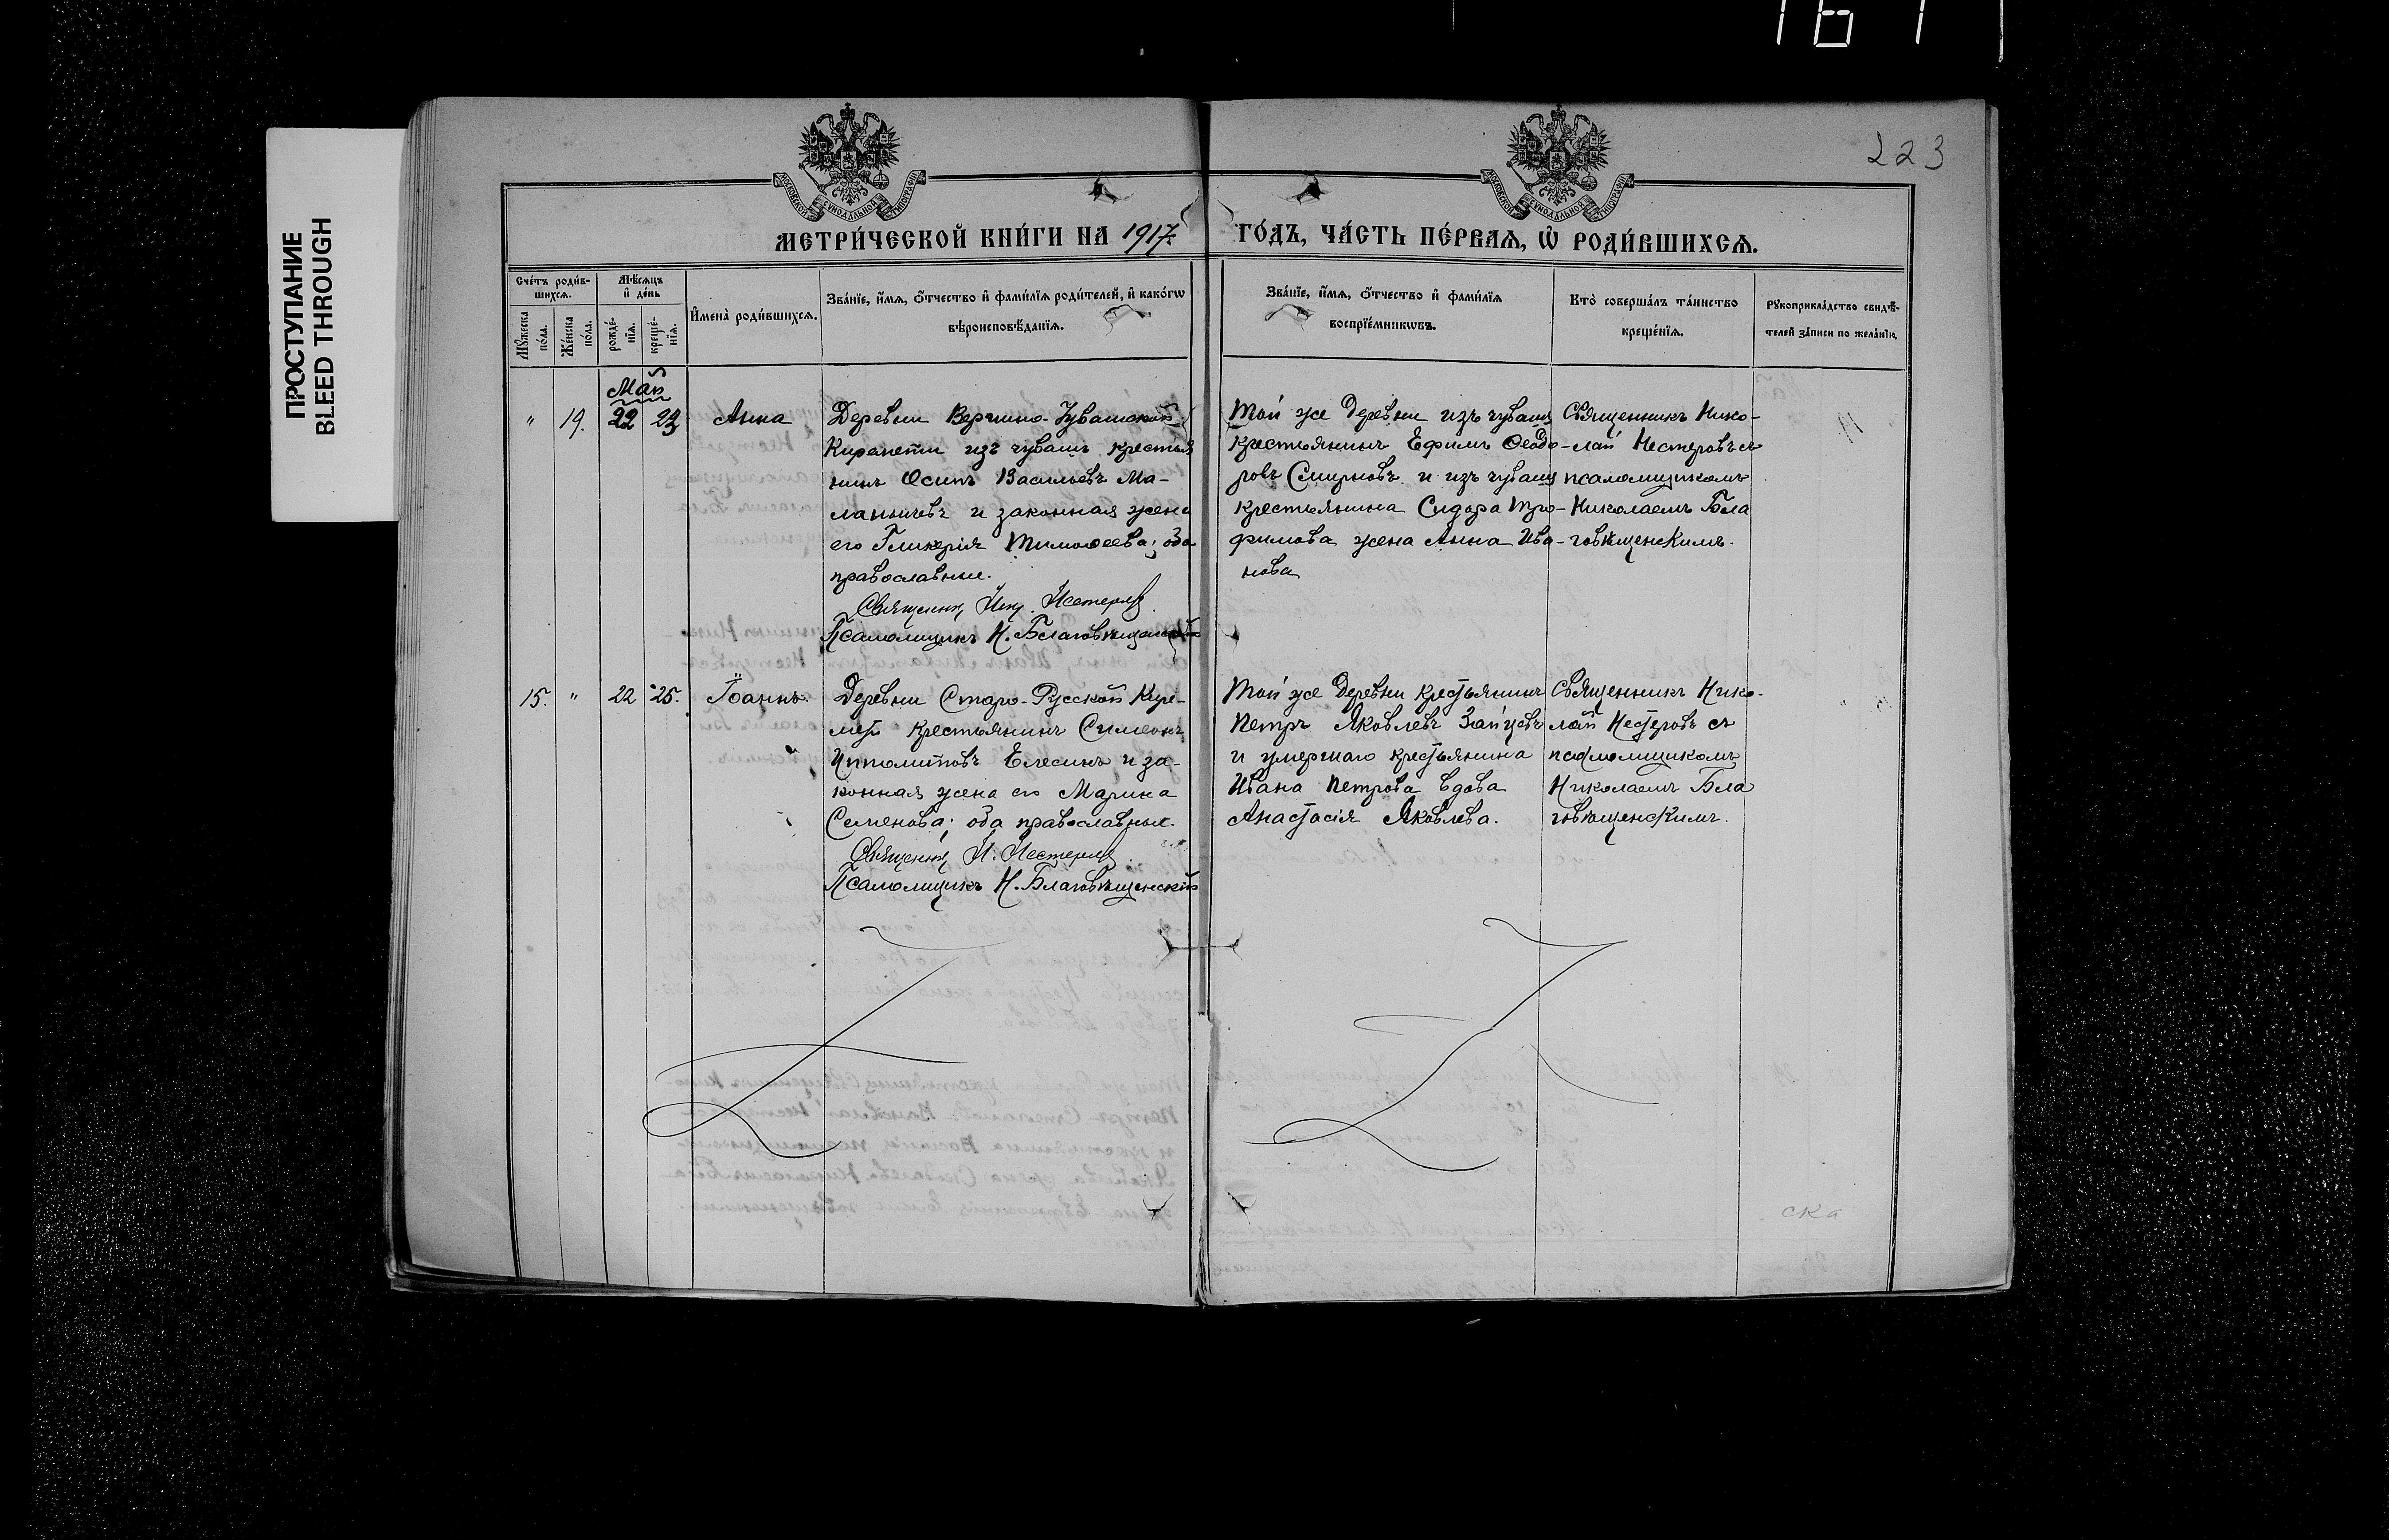 161
ПРОСТУПАНИЕ
BLEED THROUGH
223
МОСКОВСКОЙ СУНОДАЛЬНОЙ ТИПОГРАФІИ
МОСКОВСКОЙ СУНОДАЛЬНОЙ ТИПОГРАФІИ
МЕТРИ́ЧЕСКОЙ КНИ́ГИ НА 1917
ГО́ДЪ, ЧА́СТЬ ПЕ́РВАѦ, Ѿ РОДИ́ВШИХСѦ.
Сче́тъ роди́в-
шихсѧ.
Мꙋжеска по́ла.
Же́нска по́ла.
Мѣ́сѧцъ и҆ де́нь
рожде́-
нїѧ.
креще́-
нїѧ.
И҆мена̀ роди́вшихсѧ.
Зва́нїе, и҆́мѧ, ѻ҆́тчество и҆ фами́лїѧ роди́телей, и҆ како́гѡ
вѣроисповѣ́данїѧ.
Зва́нїе, и҆́мѧ, ѻ҆́тчество и҆ фами́лїѧ
воспрїе́мникѡвъ.
Кто̀ соверша́лъ та́инство
креще́нїѧ.
Рꙋкоприкла́дство свидѣ́-
телей за́писи по жела́нїю.
Май
" 19. 22 23 Анна
Деревни Вершино-Чувашской
Киремети изъ чувашъ крестья
нинъ Осипъ Васильевъ Ма-
ланычевъ и законная жена
его Гликерія Тимоѳеева; оба
православные.
Священникъ Ник. Нестеровъ
Псаломщикъ Н. Благовѣщенскій
Той же деревни изъ чувашъ
крестьянинъ Ефимъ Ѳеодо-
ровъ Смирновъ и изъ чувашъ
крестьянина Сидора Тро-
фимова жена Анна Ива-
нова
Священникъ Нико-
лай Нестеровъ съ
псаломщикомъ
Николаемъ Бла
говѣщенскимъ.
15. " 22 25. Іоаннъ.
Деревни Старо-Русской Кире-
меть крестьянинъ Симеонъ
Ипполитовъ Елесинъ и за-
конная жена его Марина
Семенова; оба православные.
Священникъ Н. Нестеровъ
Псаломщикъ Н. Благовѣщенскій
Той же деревни крестьянинъ
Петръ Яковлевъ Зайцевъ
и умершаго крестьянина
Ивана Петрова вдова
Анастасія Яковлева.
Священникъ Нико-
лай Нестеровъ съ
псаломщикомъ
Николаемъ Бла
говѣщенскимъ.
ска